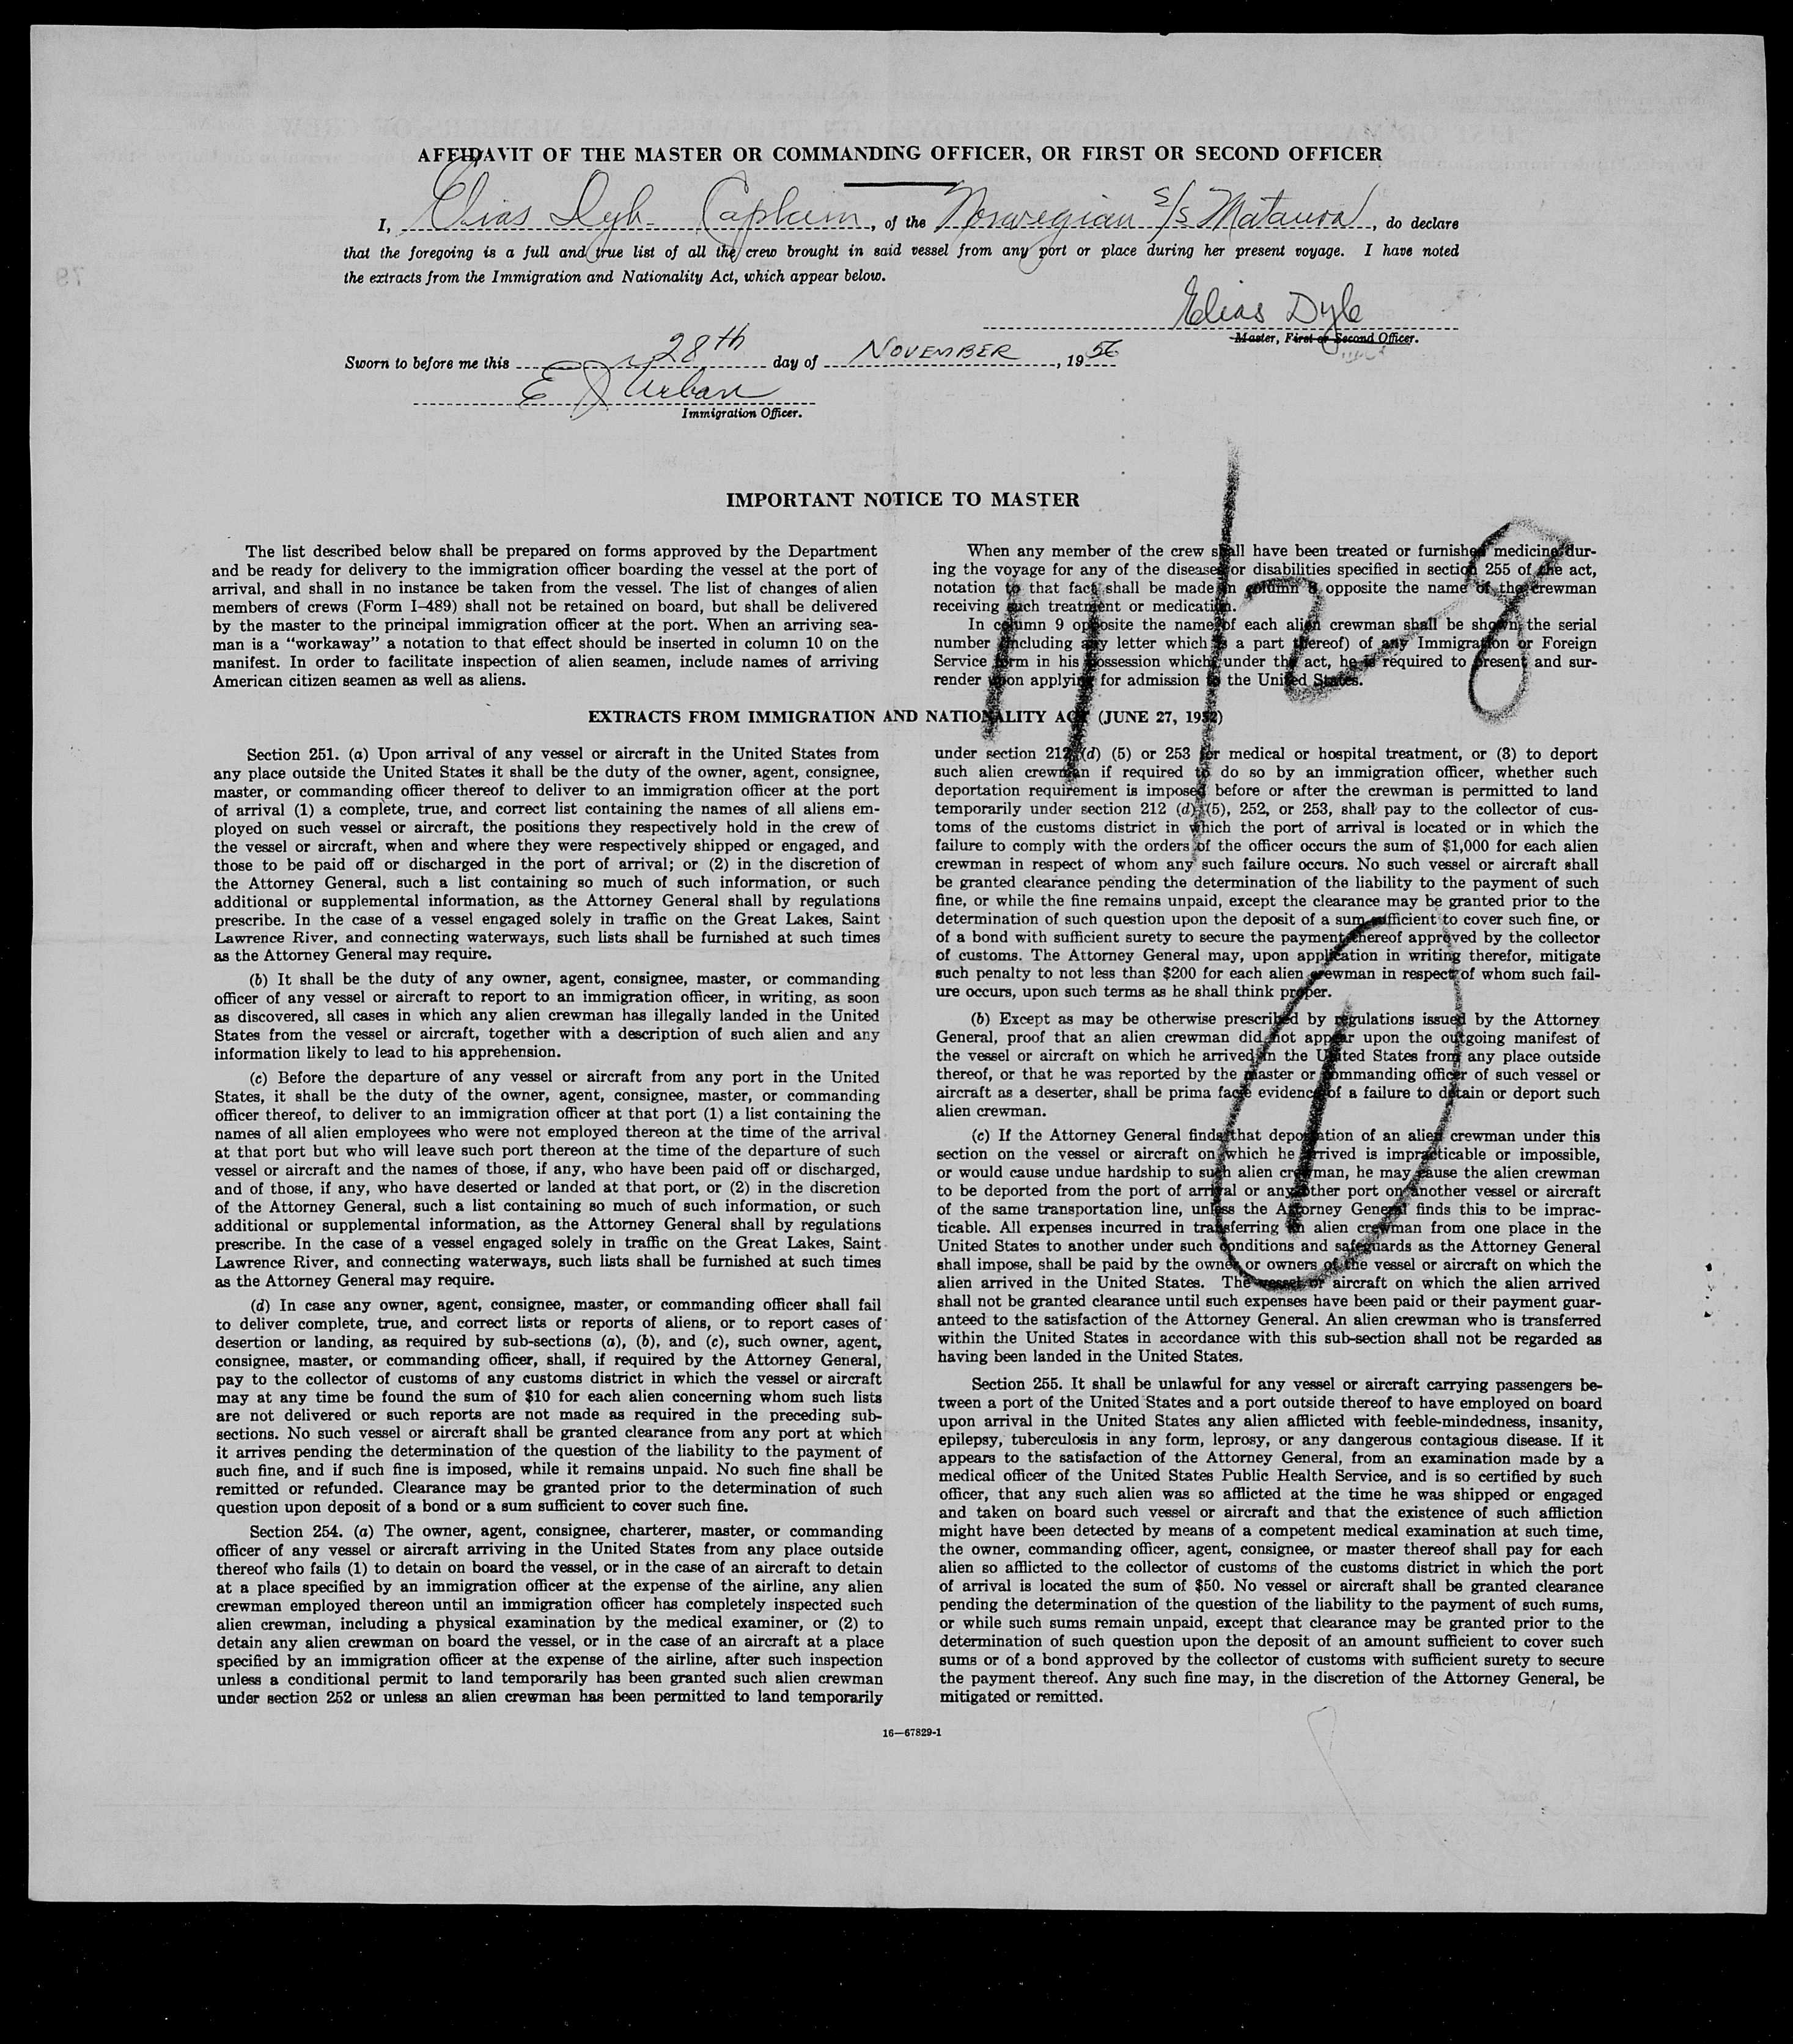 AFFIDAVIT OF THE MASTER OR COMMANDING OFFICER, OR FIRST OR SECOND OFFICER
I, Elias Dyb - Captain, of the Norwegian S/S Mataura, do declare
that the foregoing is a full and true list of all the crew brought in said vessel from any port or place during her present voyage. I have noted
the extracts from the Immigration and Nationality Act, which appear below.
Elias Dyb
Master, First or Second Officer.
Sworn to before me this 28th day of NOVEMBER, 1956
E J Urban
Immigration Officer.
IMPORTANT NOTICE TO MASTER
The list described below shall be prepared on forms approved by the Department
and be ready for delivery to the immigration officer boarding the vessel at the port of
arrival, and shall in no instance be taken from the vessel. The list of changes of alien
members of crews (Form I-489) shall not be retained on board, but shall be delivered
by the master to the principal immigration officer at the port. When an arriving sea-
man is a "workaway" a notation to that effect should be inserted in column 10 on the
manifest. In order to facilitate inspection of alien seamen, include names of arriving
American citizen seamen as well as aliens.
When any member of the crew shall have been treated or furnished medicine dur-
ing the voyage for any of the diseases or disabilities specified in section 255 of the act,
notation to that fact shall be made in column 8 opposite the name of the crewman
receiving such treatment or medication.
In column 9 opposite the name of each alien crewman shall be shown the serial
number (including any letter which is a part thereof) of any Immigration or Foreign
Service form in his possession which, under the act, he is required to present and sur-
render upon applying for admission to the United States.
11/28
EXTRACTS FROM IMMIGRATION AND NATIONALITY ACT (JUNE 27, 1952)
Section 251. (a) Upon arrival of any vessel or aircraft in the United States from
any place outside the United States it shall be the duty of the owner, agent, consignee,
master, or commanding officer thereof to deliver to an immigration officer at the port
of arrival (1) a complete, true, and correct list containing the names of all aliens em-
ployed on such vessel or aircraft, the positions they respectively hold in the crew of
the vessel or aircraft, when and where they were respectively shipped or engaged, and
those to be paid off or discharged in the port of arrival; or (2) in the discretion of
the Attorney General, such a list containing so much of such information, or such
additional or supplemental information, as the Attorney General shall by regulations
prescribe. In the case of a vessel engaged solely in traffic on the Great Lakes, Saint
Lawrence River, and connecting waterways, such lists shall be furnished at such times
as the Attorney General may require.
(b) It shall be the duty of any owner, agent, consignee, master, or commanding
officer of any vessel or aircraft to report to an immigration officer, in writing, as soon
as discovered, all cases in which any alien crewman has illegally landed in the United
States from the vessel or aircraft, together with a description of such alien and any
information likely to lead to his apprehension.
(c) Before the departure of any vessel or aircraft from any port in the United
States, it shall be the duty of the owner, agent, consignee, master, or commanding
officer thereof, to deliver to an immigration officer at that port (1) a list containing the
names of all alien employees who were not employed thereon at the time of the arrival
at that port but who will leave such port thereon at the time of the departure of such
vessel or aircraft and the names of those, if any, who have been paid off or discharged,
and of those, if any, who have deserted or landed at that port, or (2) in the discretion
of the Attorney General, such a list containing so much of such information, or such
additional or supplemental information, as the Attorney General shall by regulations
prescribe. In the case of a vessel engaged solely in traffic on the Great Lakes, Saint
Lawrence River, and connecting waterways, such lists shall be furnished at such times
as the Attorney General may require.
(d) In case any owner, agent, consignee, master, or commanding officer shall fail
to deliver complete, true, and correct lists or reports of aliens, or to report cases of
desertion or landing, as required by sub-sections (a), (b), and (c), such owner, agent,
consignee, master, or commanding officer, shall, if required by the Attorney General,
pay to the collector of customs of any customs district in which the vessel or aircraft
may at any time be found the sum of $10 for each alien concerning whom such lists
are not delivered or such reports are not made as required in the preceding sub-
sections. No such vessel or aircraft shall be granted clearance from any port at which
it arrives pending the determination of the question of the liability to the payment of
such fine, and if such fine is imposed, while it remains unpaid. No such fine shall be
remitted or refunded. Clearance may be granted prior to the determination of such
question upon deposit of a bond or a sum sufficient to cover such fine.
Section 254. (a) The owner, agent, consignee, charterer, master, or commanding
officer of any vessel or aircraft arriving in the United States from any place outside
thereof who fails (1) to detain on board the vessel, or in the case of an aircraft to detain
at a place specified by an immigration officer at the expense of the airline, any alien
crewman employed thereon until an immigration officer has completely inspected such
alien crewman, including a physical examination by the medical examiner, or (2) to
detain any alien crewman on board the vessel, or in the case of an aircraft at a place
specified by an immigration officer at the expense of the airline, after such inspection
unless a conditional permit to land temporarily has been granted such alien crewman
under section 252 or unless an alien crewman has been permitted to land temporarily
under section 212 (d) (5) or 253 for medical or hospital treatment, or (3) to deport
such alien crewman if required to do so by an immigration officer, whether such
deportation requirement is imposed before or after the crewman is permitted to land
temporarily under section 212 (d) (5), 252, or 253, shall pay to the collector of cus-
toms of the customs district in which the port of arrival is located or in which the
failure to comply with the orders of the officer occurs the sum of $1,000 for each alien
crewman in respect of whom any such failure occurs. No such vessel or aircraft shall
be granted clearance pending the determination of the liability to the payment of such
fine, or while the fine remains unpaid, except the clearance may be granted prior to the
determination of such question upon the deposit of a sum sufficient to cover such fine, or
of a bond with sufficient surety to secure the payment thereof approved by the collector
of customs. The Attorney General may, upon application in writing therefor, mitigate
such penalty to not less than $200 for each alien crewman in respect of whom such fail-
ure occurs, upon such terms as he shall think proper.
(b) Except as may be otherwise prescribed by regulations issued by the Attorney
General, proof that an alien crewman did not appear upon the outgoing manifest of
the vessel or aircraft on which he arrived in the United States from any place outside
thereof, or that he was reported by the master or commanding officer of such vessel or
aircraft as a deserter, shall be prima facie evidence of a failure to detain or deport such
alien crewman.
(c) If the Attorney General finds that deportation of an alien crewman under this
section on the vessel or aircraft on which he arrived is impracticable or impossible,
or would cause undue hardship to such alien crewman, he may cause the alien crewman
to be deported from the port of arrival or any other port on another vessel or aircraft
of the same transportation line, unless the Attorney General finds this to be imprac-
ticable. All expenses incurred in transferring an alien crewman from one place in the
United States to another under such conditions and safeguards as the Attorney General
shall impose, shall be paid by the owner or owners of the vessel or aircraft on which the
alien arrived in the United States. The vessel or aircraft on which the alien arrived
shall not be granted clearance until such expenses have been paid or their payment guar-
anteed to the satisfaction of the Attorney General. An alien crewman who is transferred
within the United States in accordance with this sub-section shall not be regarded as
having been landed in the United States.
1
Section 255. It shall be unlawful for any vessel or aircraft carrying passengers be-
tween a port of the United States and a port outside thereof to have employed on board
upon arrival in the United States any alien afflicted with feeble-mindedness, insanity,
epilepsy, tuberculosis in any form, leprosy, or any dangerous contagious disease. If it
appears to the satisfaction of the Attorney General, from an examination made by a
medical officer of the United States Public Health Service, and is so certified by such
officer, that any such alien was so afflicted at the time he was shipped or engaged
and taken on board such vessel or aircraft and that the existence of such affliction
might have been detected by means of a competent medical examination at such time,
the owner, commanding officer, agent, consignee, or master thereof shall pay for each
alien so afflicted to the collector of customs of the customs district in which the port
of arrival is located the sum of $50. No vessel or aircraft shall be granted clearance
pending the determination of the question of the liability to the payment of such sums,
or while such sums remain unpaid, except that clearance may be granted prior to the
determination of such question upon the deposit of an amount sufficient to cover such
sums or of a bond approved by the collector of customs with sufficient surety to secure
the payment thereof. Any such fine may, in the discretion of the Attorney General, be
mitigated or remitted.
16—67829-1